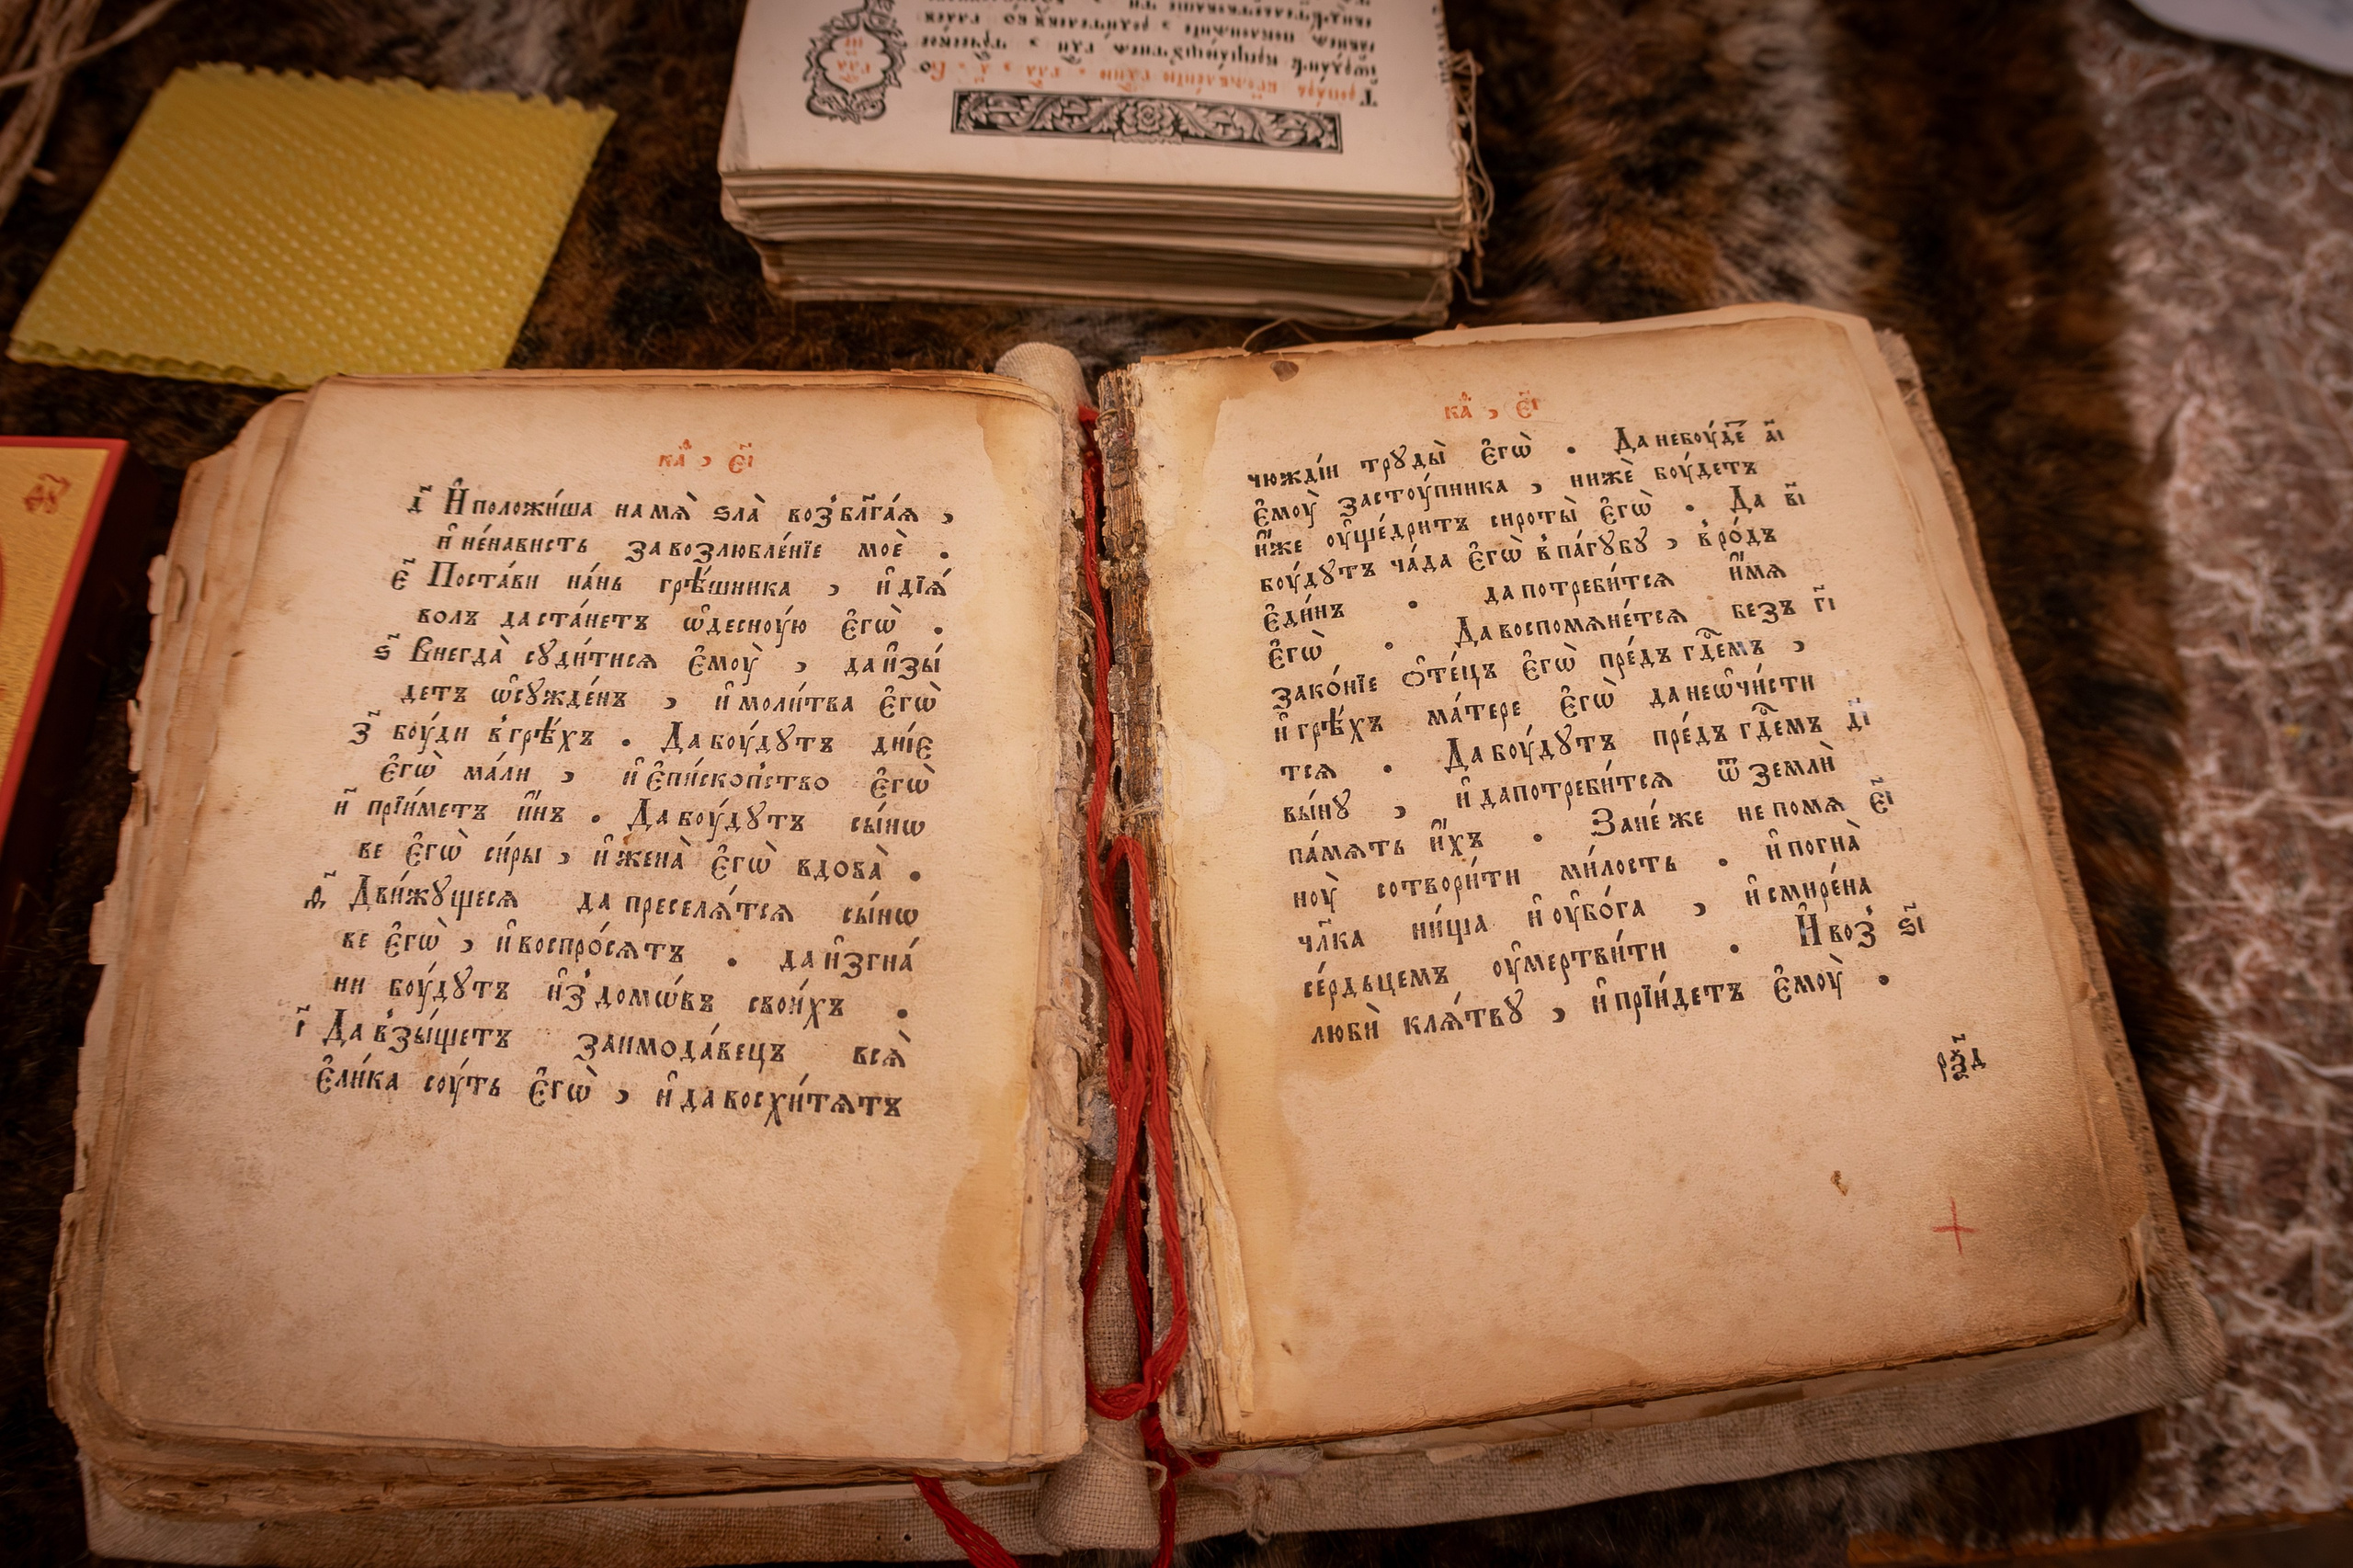 ка҃ , є҃і
д҃ И҆ положи́ша на мѧ̀ ѕла̀ воз̾ бл҃га́ѧ ,
и҆ не́нависть за возлюбле́нїе моѐ .
є҃ Поста́ви на́нь грѣ́шника , и҆ дїѧ́
волъ да ста́нетъ ѡ҆деснꙋ́ю є҆гѡ̀ .
ѕ҃ Внегда̀ сꙋди́тисѧ є҆моꙋ̀ , да и҆зы́
детъ ѡ҆сꙋжде́нъ , и҆ моли́тва є҆гѡ̀
з҃ боꙋ́ди в̾ грѣ́хъ . Да боꙋ́дꙋтъ дні́е
є҆гѡ̀ ма́ли , и҆ є҆пи́скопьство є҆гѡ̀
и҃ прїи́метъ и҆́нъ . Да боꙋ́дꙋтъ сы́нѡ
ве є҆гѡ̀ си́ры , и҆ жена̀ є҆гѡ̀ вдова̀ .
ѳ҃ Дви́жꙋщесѧ да преселѧ́тсѧ сы́нѡ
ве є҆гѡ̀ , и҆ воспро́сѧтъ . да и҆згна́
ни боꙋ́дꙋтъ и҆з̾ домѡ́въ свои́хъ .
і҃ Да в̾зы́щетъ заимода́вецъ всѧ̀
є҆ли́ка соꙋ́ть є҆гѡ̀ , и҆ да восхи́тѧтъ
ка҃ , є҃і
чюжді́и трꙋды̀ є҆гѡ̀ . Да не боꙋ́де҇ а҃і
є҆моꙋ̀ застоꙋ́пника , нижѐ боꙋ́детъ
и҆́же оꙋ҆ще́дритъ сироты̀ є҆гѡ̀ . Да в҃і
боꙋ́дꙋтъ ча́да є҆гѡ̀ в̾ па́гꙋбꙋ , в̾ ро́дъ
є҆ди́нъ . да потреби́тсѧ и҆́мѧ
є҆гѡ̀ . Да воспомѧне́тсѧ безъ г҃і
зако́нїе ѻ҆те́цъ є҆гѡ̀ пре́дъ гдⷭ҇емъ ,
и҆ грѣ́хъ ма́тере є҆гѡ̀ да не ѡ҆чи́сти
тсѧ . Да боꙋ́дꙋтъ пре́дъ гдⷭ҇емъ д҃і
вы́нꙋ , и҆ да потреби́тсѧ ѿ землѝ
па́мѧть и҆́хъ . Зане́же не помѧ є҃і
ноꙋ̀ сотвори́ти ми́лость . и҆ погна̀
чл҃ка ни́ща и҆ оꙋ҆бо́га , и҆ смире́на
се́рдьцемъ оꙋ҆мертви́ти . И҆ воз̾ ѕ҃і
любѝ клѧ́твꙋ , и҆ прїи́детъ є҆моꙋ̀ .